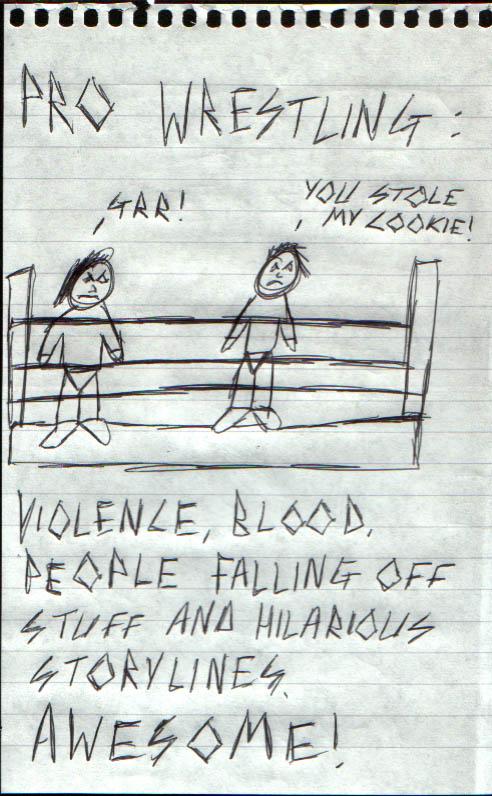 PRO WRESTLING:
GRR!
YOU STOLE
MY COOKIE!
VIOLENCE, BLOOD,
PEOPLE FALLING OFF
STUFF AND HILARIOUS
STORYLINES.
AWESOME!